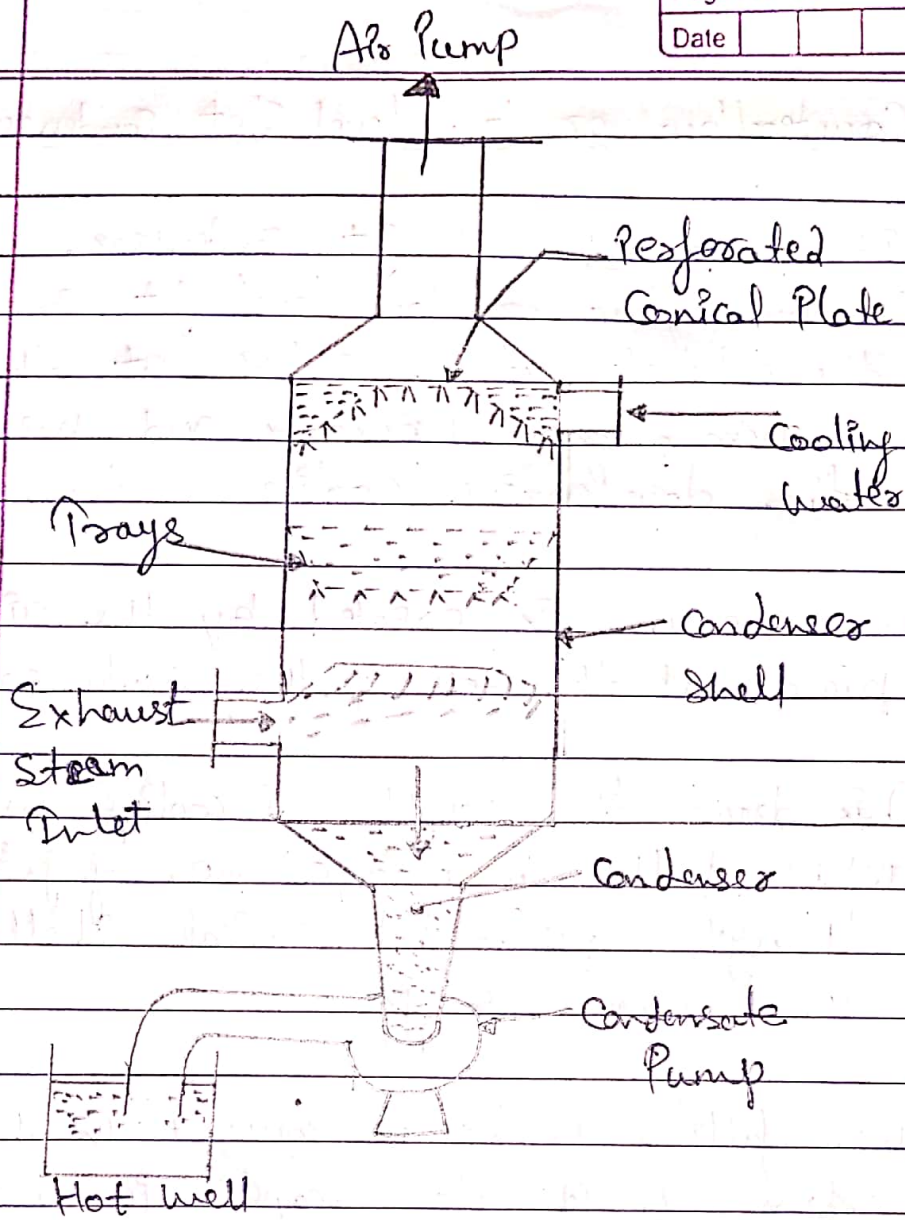 Date
Air Pump
Perforated
Conical Plate
Cooling
Water
Trays
Condenser
Shell
Exhaust
Steam
Inlet
Condenser
Condensate
Pump
Hot Well